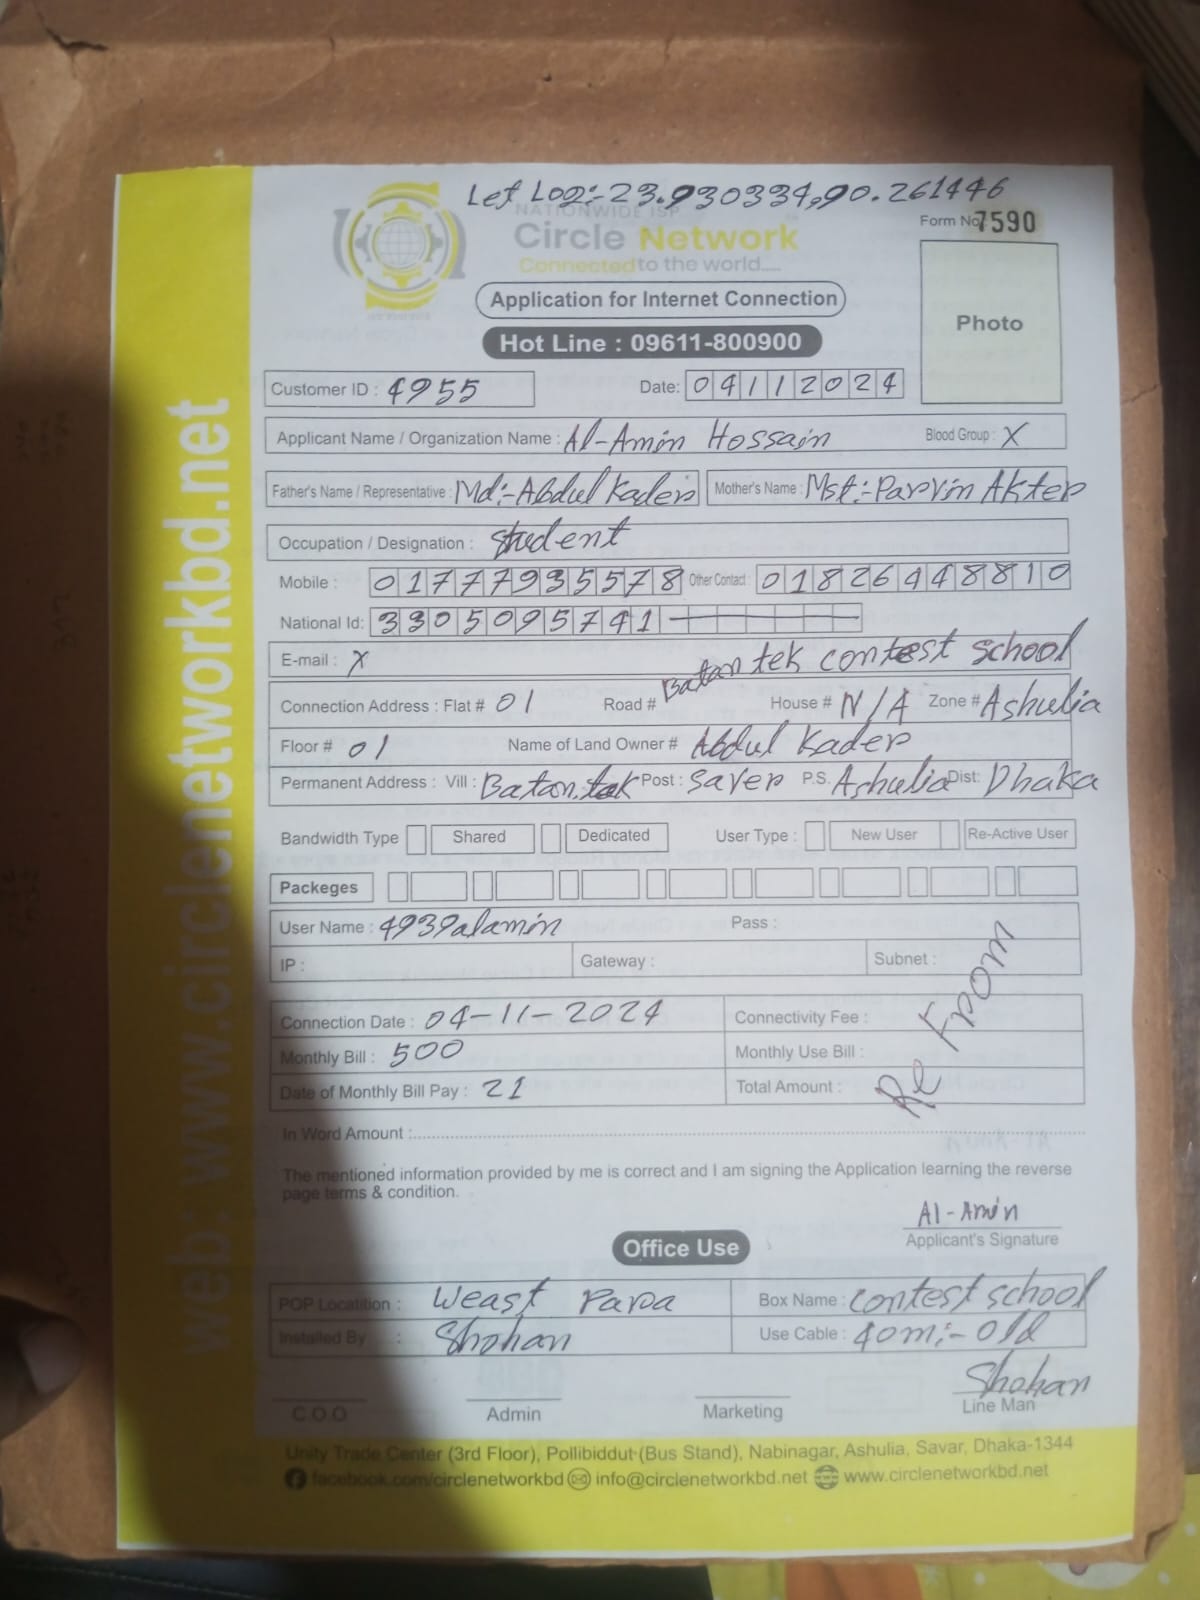 Let Log:- 23.930334,90.261446
NATIONWIDE ISP
Circle Network
Connected to the world.....
Form No 7590
Application for Internet Connection
Photo
Hot Line : 09611-800900
Customer ID : 4955
Date: 04112024
Applicant Name / Organization Name : Al-Amin Hossain Blood Group : X
Father's Name / Representative : Md:-Abdul Kader Mother's Name : Mst:-Parvin Akter
Occupation / Designation : Student
Mobile : 01777935578 Other Contact : 01826448810
National Id: 3305095741
E-mail : X
Connection Address : Flat # 01 Road # Batan tek contest school House # N/A Zone # Ashulia
Floor # 01 Name of Land Owner # Abdul Kader
Permanent Address : Vill : Batan tek Post : Saver P.S. Ashulia Dist: Dhaka
Bandwidth Type Shared Dedicated User Type : New User Re-Active User
Packeges
User Name : 4939alamin Pass :
IP : Gateway : Subnet :
Re From
Connection Date : 04-11-2024 Connectivity Fee :
Monthly Bill : 500 Monthly Use Bill :
Date of Monthly Bill Pay : 21 Total Amount :
In Word Amount :
The mentioned information provided by me is correct and I am signing the Application learning the reverse
page terms & condition.
Al-Amin
Applicant's Signature
Office Use
POP Locatition : Weast Para Box Name : contest school
Installed By : Shohan Use Cable : 40m:- Old
Shohan
C.O.O Admin Marketing Line Man
Unity Trade Center (3rd Floor), Pollibiddut (Bus Stand), Nabinagar, Ashulia, Savar, Dhaka-1344
facebook.com/circlenetworkbd info@circlenetworkbd.net www.circlenetworkbd.net
web: www.circlenetworkbd.net